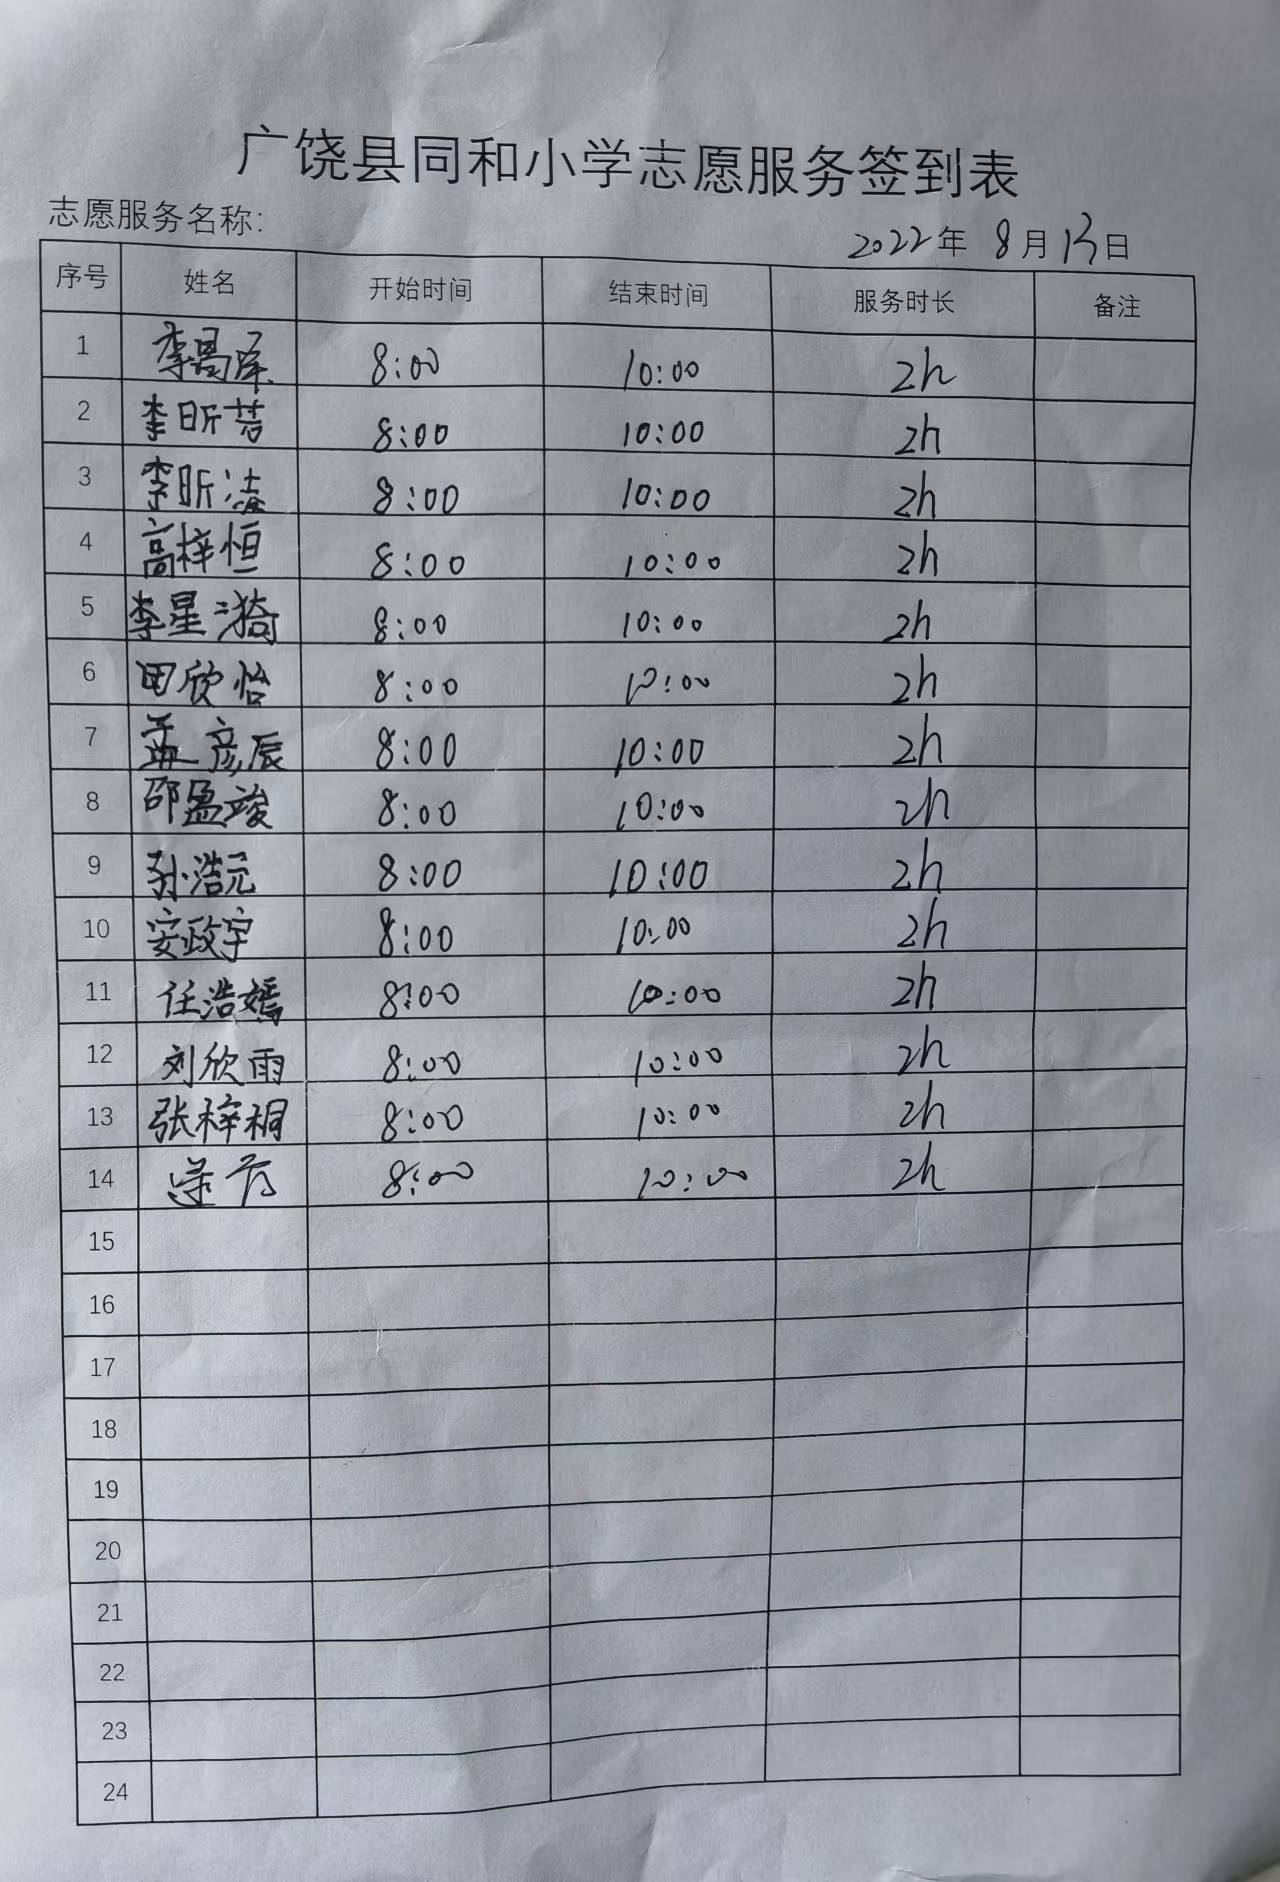 广饶县同和小学志愿服务签到表
志愿服务名称:
2022年 8月13日
序号 姓名 开始时间 结束时间 服务时长 备注
1 李昌泽 8:00 10:00 2h
2 李昕芳 8:00 10:00 2h
3 李昕洁 8:00 10:00 2h
4 高梓恒 8:00 10:00 2h
5 李星漪 8:00 10:00 2h
6 田欣怡 8:00 10:00 2h
7 孟彦辰 8:00 10:00 2h
8 邵盈竣 8:00 10:00 2h
9 孙浩元 8:00 10:00 2h
10 安政宇 8:00 10:00 2h
11 任浩嫣 8:00 10:00 2h
12 刘欣雨 8:00 10:00 2h
13 张梓桐 8:00 10:00 2h
14 8:00 10:00 2h
15
16
17
18
19
20
21
22
23
24